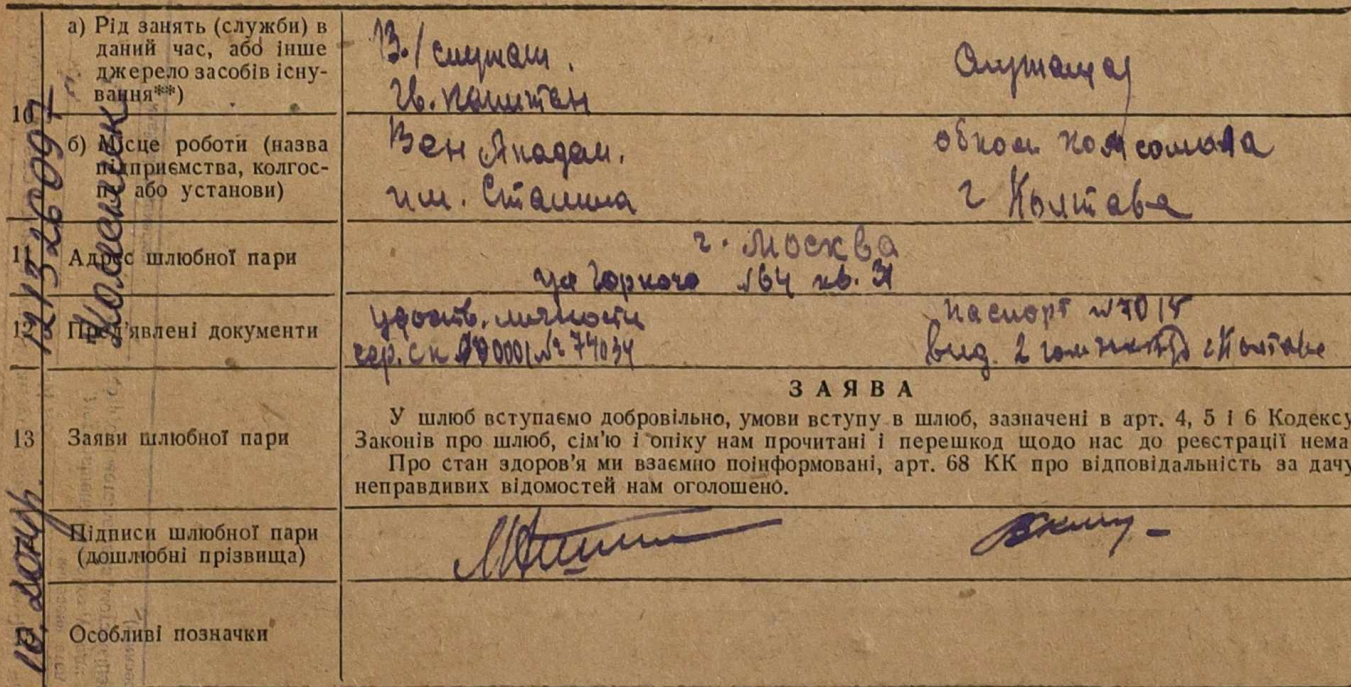 а) Рід занять (служби) в
даний час, або інше
джерело засобів існу-
вання**)
В./служащ.
Гв. капитан
Служащая
10
б) Місце роботи (назва
підприємства, колгос-
пу або установи)
Воен Академ.
им. Сталина
обком комсомола
г Полтава
11 Адрес шлюбної пари
г. Москва
ул Горького №64 кв. 31
12 Пред'явлені документи
удостов. личности
сер. № 74034
паспорт №7015
выд. 2 г Полтаве
13 Заяви шлюбної пари
ЗАЯВА
У шлюб вступаємо добровільно, умови вступу в шлюб, зазначені в арт. 4, 5 і 6 Кодексу
Законів про шлюб, сім'ю і опіку нам прочитані і перешкод щодо нас до реєстрації нема
Про стан здоров'я ми взаємно поінформовані, арт. 68 КК про відповідальність за дачу
неправдивих відомостей нам оголошено.
Підписи шлюбної пари
(дошлюбні прізвища)
15 Особливі позначки